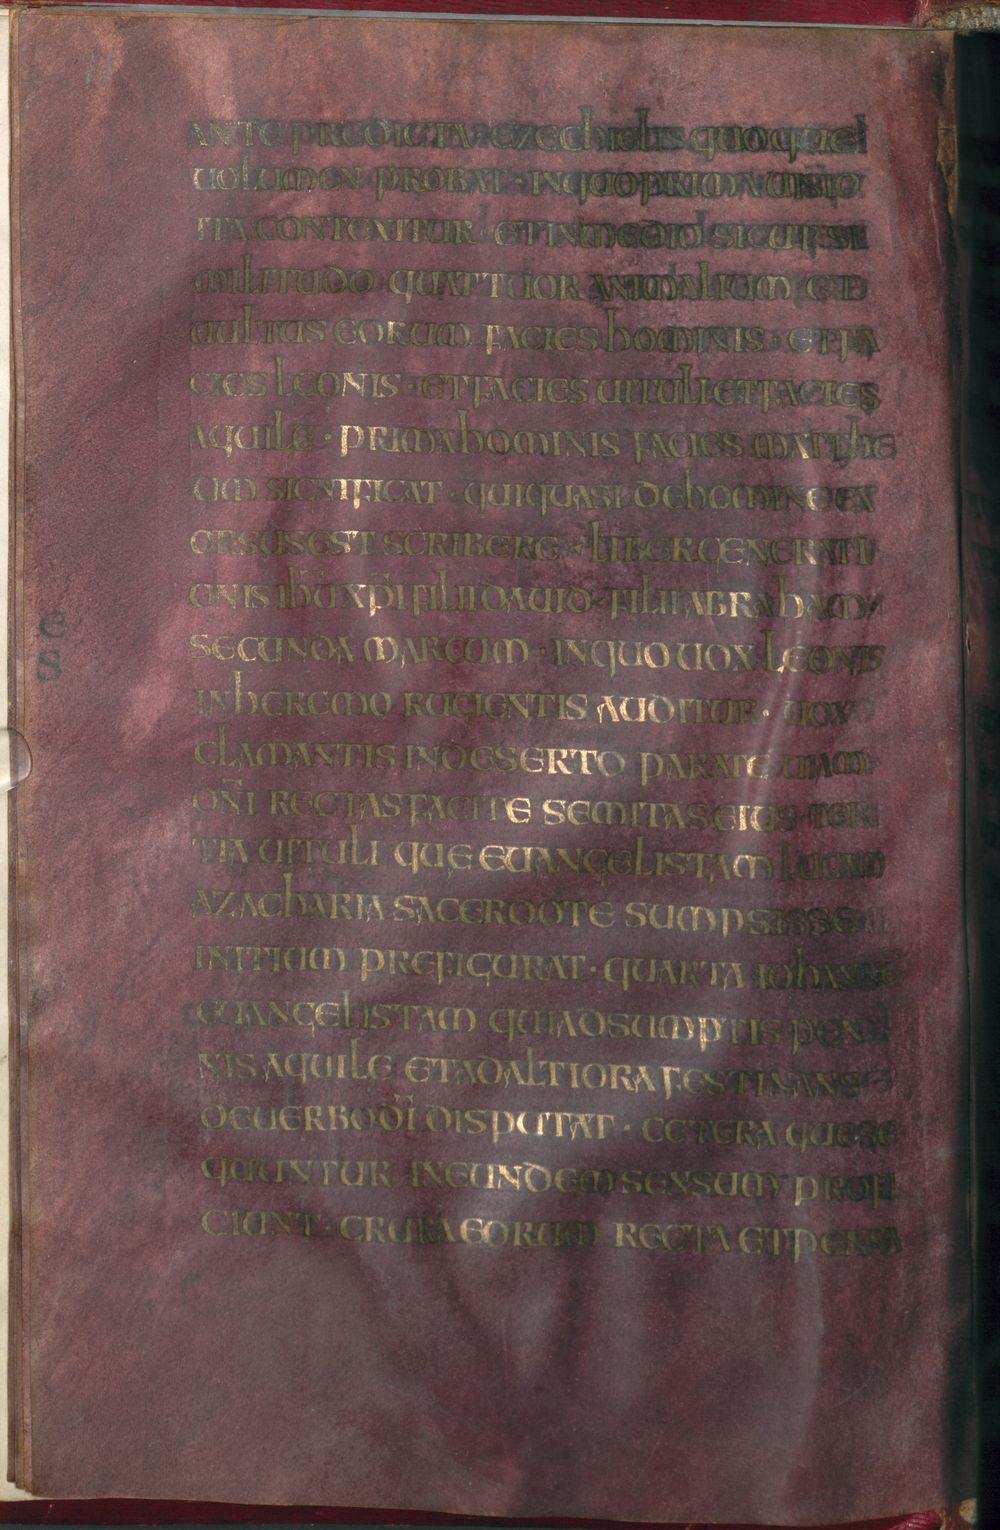 11
ANTE PREDICTA · EZECHIELIS QUOQUE
UOLUMEN PROBAT · IN QUO PRIMA UISIO
ITA CONTEXITUR · ET IN MEDIO SICUT SI
MILITUDO QUATTUOR ANIMALIUM ET
UULTUS EORUM FACIES HOMINIS · ET FA
CIES LEONIS · ET FACIES UITULI ET FACIES
AQUILE · PRIMA HOMINIS FACIES MATTHE
UM SIGNIFICAT · QUI QUASI DE HOMINE EX
ORSUS EST SCRIBERE · LIBER GENERATI
ONIS IHU XPI FILII DAUID · FILII ABRAHAM
SECUNDA MARCUM · IN QUO UOX LEONIS
IN HEREMO RUGIENTIS AUDITUR · UOX
CLAMANTIS IN DESERTO PARATE UIAM
DNI RECTAS FACITE SEMITAS EIUS · TER
TIA UITULI QUE EUANGELISTAM LUCAM
A ZACHARIA SACERDOTE SUMPSISSE
INITIUM PREFIGURAT · QUARTA IOHANNE
EUANGELISTAM QUI ADSUMPTIS PEN
NIS AQUILE ET AD ALTIORA FESTINANS
DE UERBO DI DISPUTAT · CETERA QUE SE
QUUNTUR IN EUNDEM SENSUM PROFI
CIUNT · CRURA EORUM RECTA ET PENNA